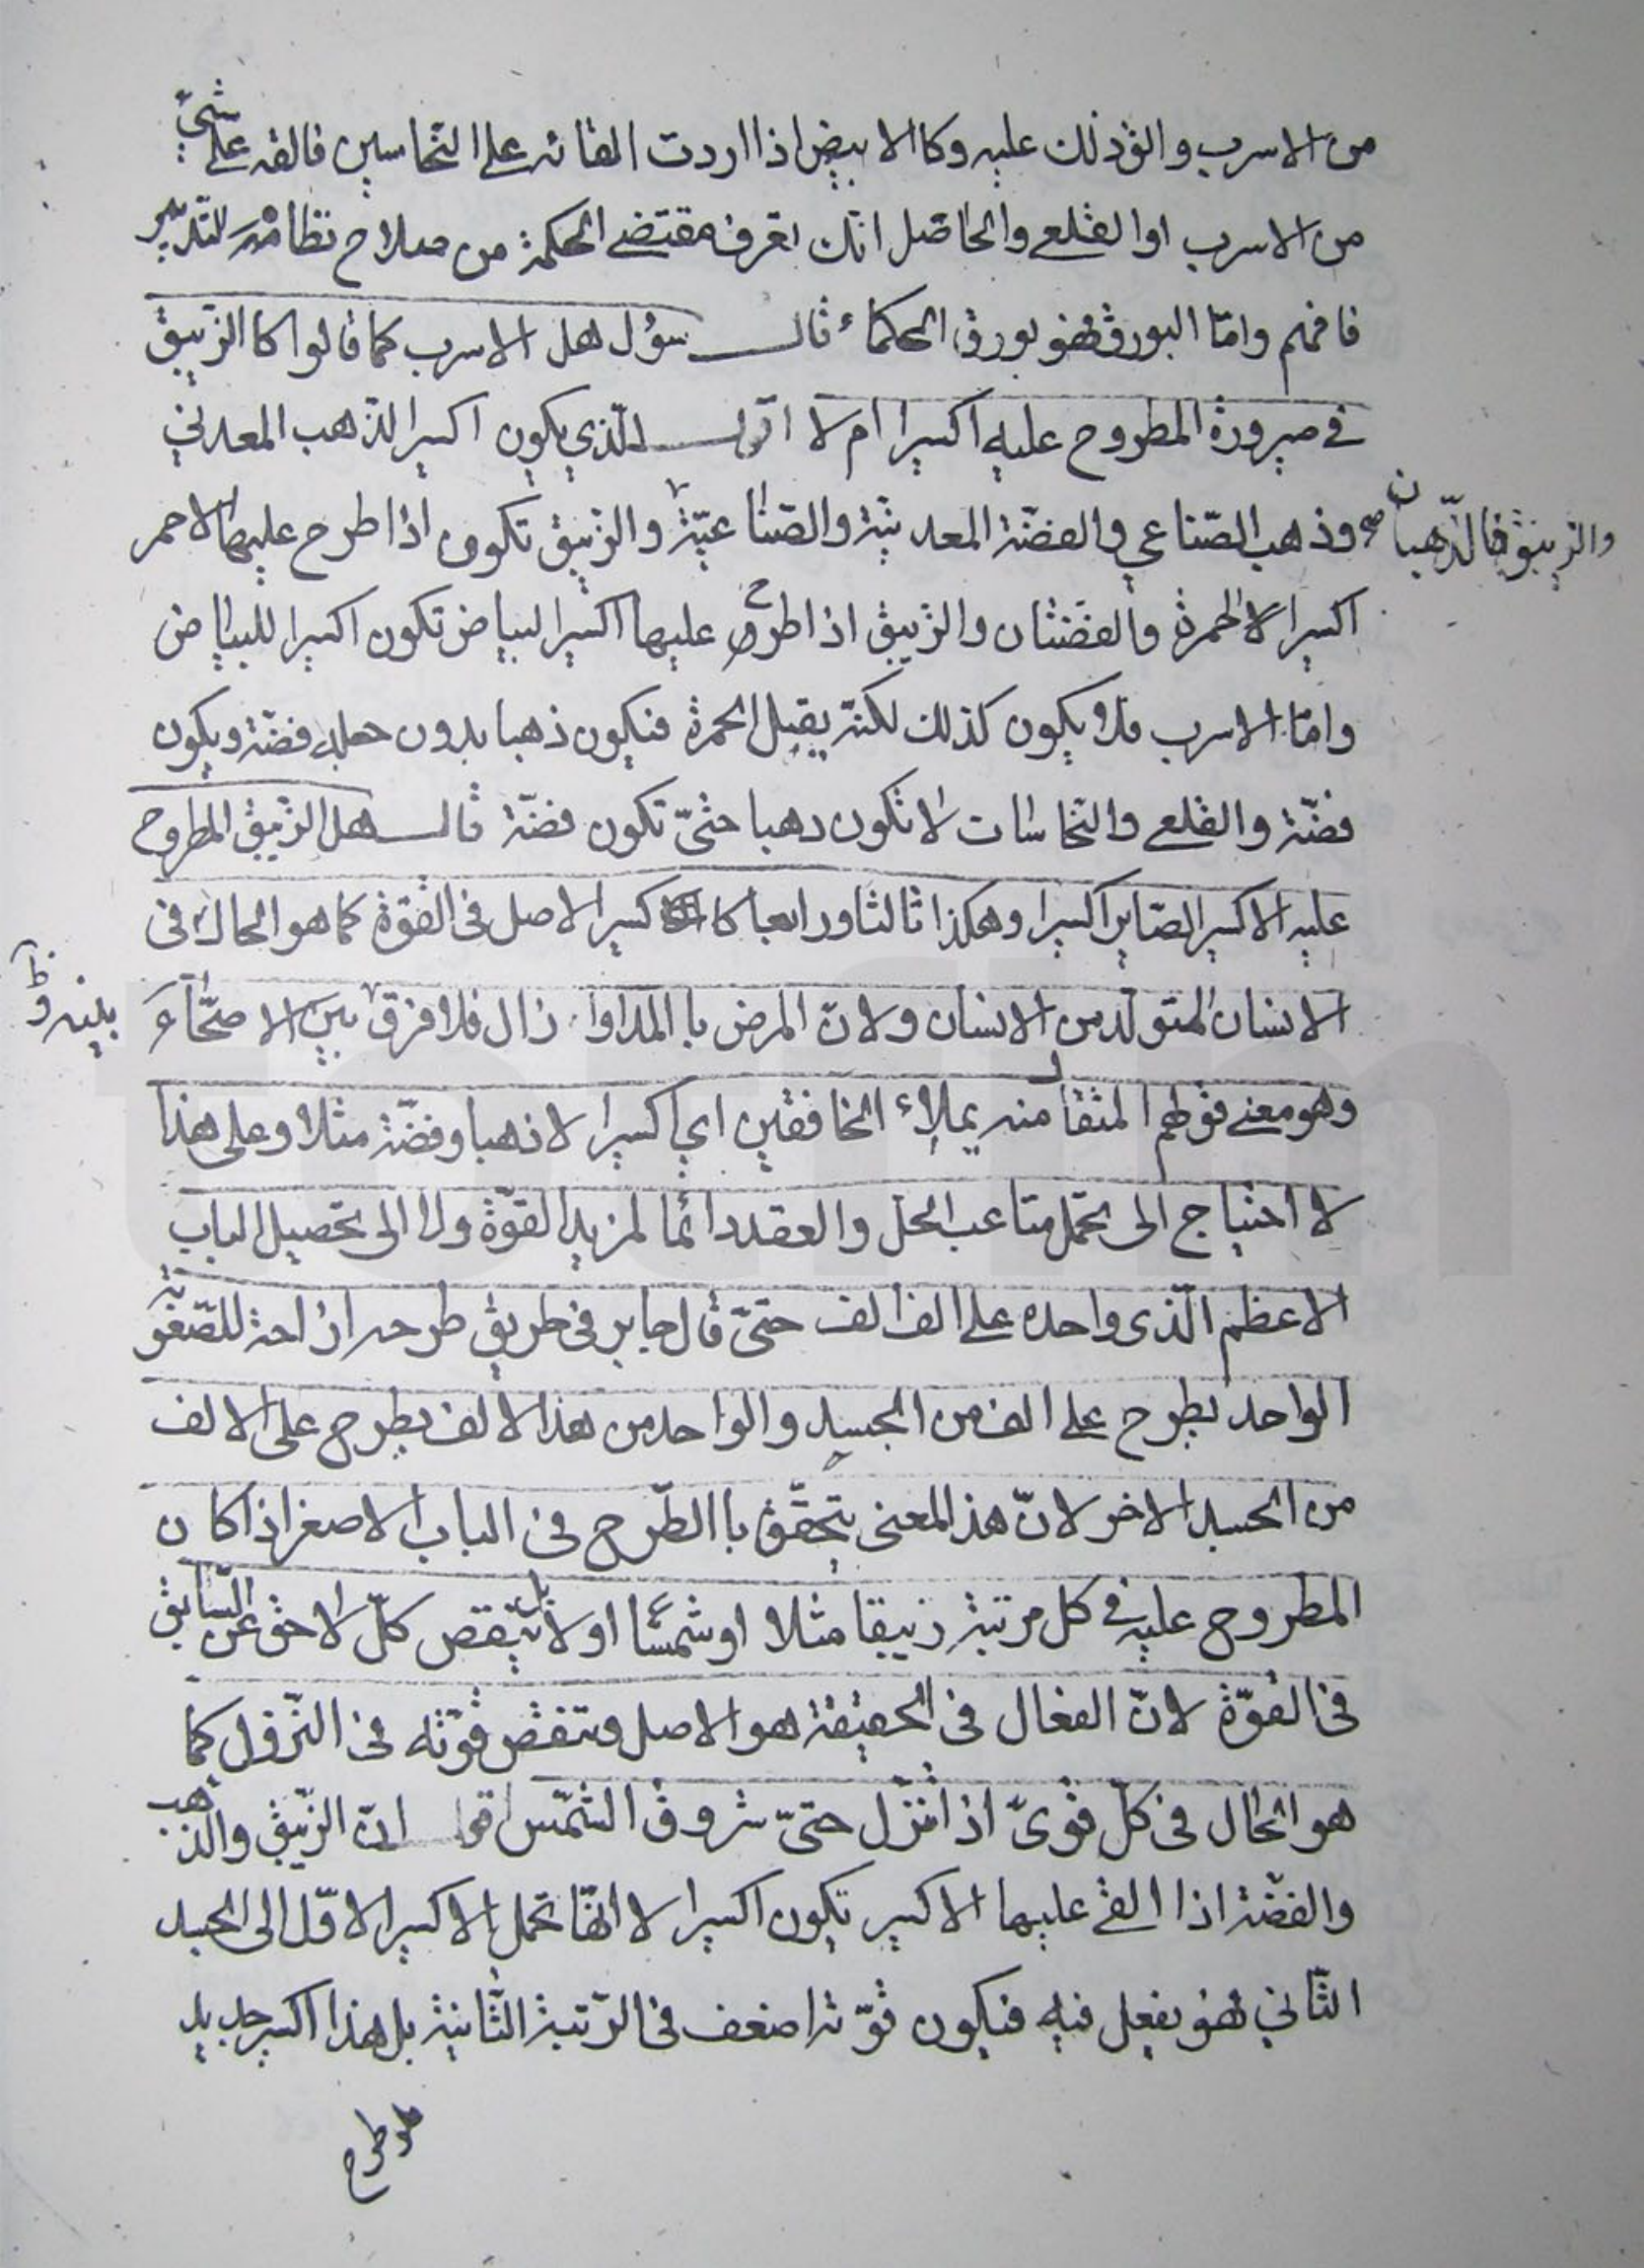 من الاسرب والق ذلك عليه وكا الابيض اذا اردت القائه على النحاسين فالقه على شئ
من الاسرب او القلعي والحاصل انك تعرف مقتضى الحكمة من صلاح نظام التدبير
فافهم واما البورق فهو بورق الحكماء قال سؤل هل الاسرب كما قالوا كا الزيبق
في صيرورة المطروح عليه اكسيرا ام لا اقول الذي يكون اكسيرا الذهب المعدني
وذهب الصناعي والفضة المعدنية والصناعية والزيبق تكون اذا طرح عليها الاحمر
والزيبق فالذهبان صح
اكسيرا لا الحمرة والفضتان والزيبق اذا طرح عليها اكسير البياض تكون اكسيرا للبياض
واما الاسرب فلا يكون كذلك لكنه يقبل الحمرة فيكون ذهبا بدون حمله فضة ويكون
فضة والقلعي والنحاسات لا تكون ذهبا حتى تكون فضة قال هل الزيبق المطروح
عليه الاكسير الصاير اكسيرا وهكذا ثالثا ورابعا كا اكسير الاصل في القوة كما هو الحال في
الانسان المتولد من الانسان ولان المرض با المداوا زال فلا فرق بين الاصحاء
بينه و
وهو معنى قولهم المثقال منه يملاء الخافقين اي اكسيرا لا ذهبا وفضة مثلا وعلى هذا
لا احتياج الى تحمل متاعب الحل والعقد دائما لمزيد القوة ولا الى تحصيل الباب
الاعظم الذى واحده على الف الف حتى قال جابر في طريق طرحه اراحة للصغر
الواحد يطرح على الف من الجسد والواحد من هذا الالف يطرح على الالف
من الجسد الاخر لان هذا المعنى يتحقق با الطرح في الباب الاصغر اذا كان
المطروح عليه في كل مرتبة زيبقا مثلا او شمسا او لا بل ينقص كل لاحق عن السابق
في القوة لان الفعال في الحقيقة هو الاصل وتنقص قوته في التنزل كما
هو الحال في كل قوى اذا تنزل حتى شروق الشمس اقول ان الزيبق والذهب
والفضة اذا القى عليها الاكسير تكون اكسيرا لا انها تحمل الاكسير الاول الى الجسد
الثاني فهو يفعل فيه فيكون قوته اضعف في الرتبة الثانية بل هذا اكسير جديد
طرح